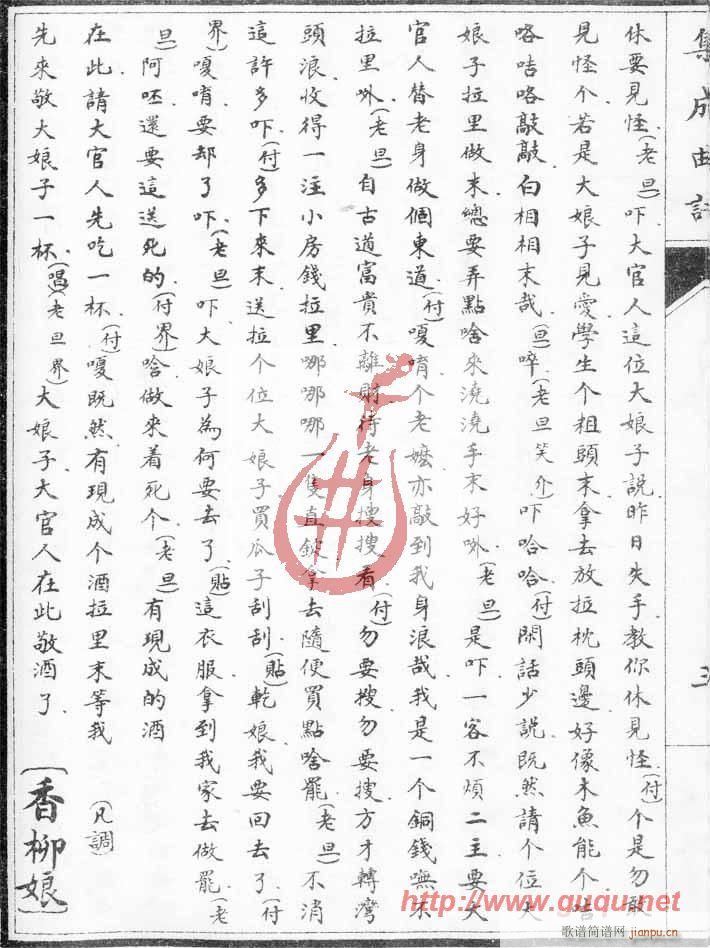 集成曲譜
休要見怪(老旦)吓大官人這位大娘子説昨日失手教你休見怪(付)个是勿敢
見怪个若是大娘子見愛學生个粗頭末拿去放拉枕頭邊好像木魚能个咭
咯咭咯敲敲白相相末哉(旦)啐(老旦笑介)吓哈哈(付)閑話少説既然請个位大
娘子拉里做末總要弄點啥來澆澆手末好㖸(老旦)是吓一客不煩二主要大
官人替老身做個東道(付)嗄唷个老嬤亦敲到我身浪哉我是一个銅錢嘸不
拉里㖸(老旦)自古道富貴不離財待老身搜搜看(付)勿要搜勿要搜方才轉灣
頭浪收得一注小房錢拉里哪哪哪一隻直錠拿去隨便買點啥罷(老旦)不消
這許多吓(付)多下來末送拉个位大娘子買瓜子刮刮(貼)乾娘我要回去了(付
界)嗄唷要却了吓(老旦)吓大娘子為何要去了(貼)這衣服拿到我家去做罷(老
旦)阿呸還要這送死的(付界)啥做來着死个(老旦)有現成的酒
在此請大官人先吃一杯(付)嗄既然有現成个酒拉里末等我
先來敬大娘子一杯(唱)(老旦界)大娘子大官人在此敬酒了
(凡調)
【香柳娘】
www.guqu.net
歌谱简谱网
jianpu.cn